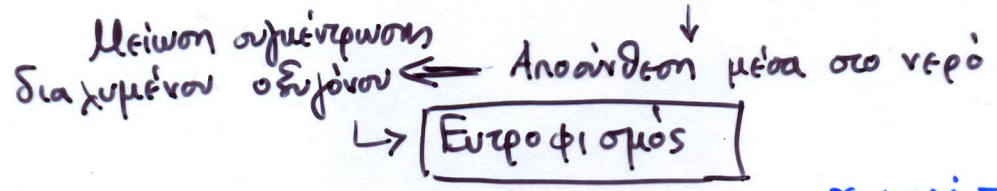 Μείωση συγκέντρωσης
διαλυμένου οξυγόνου
Αποσύνθεση μέσα στο νερό
Ευτροφισμός